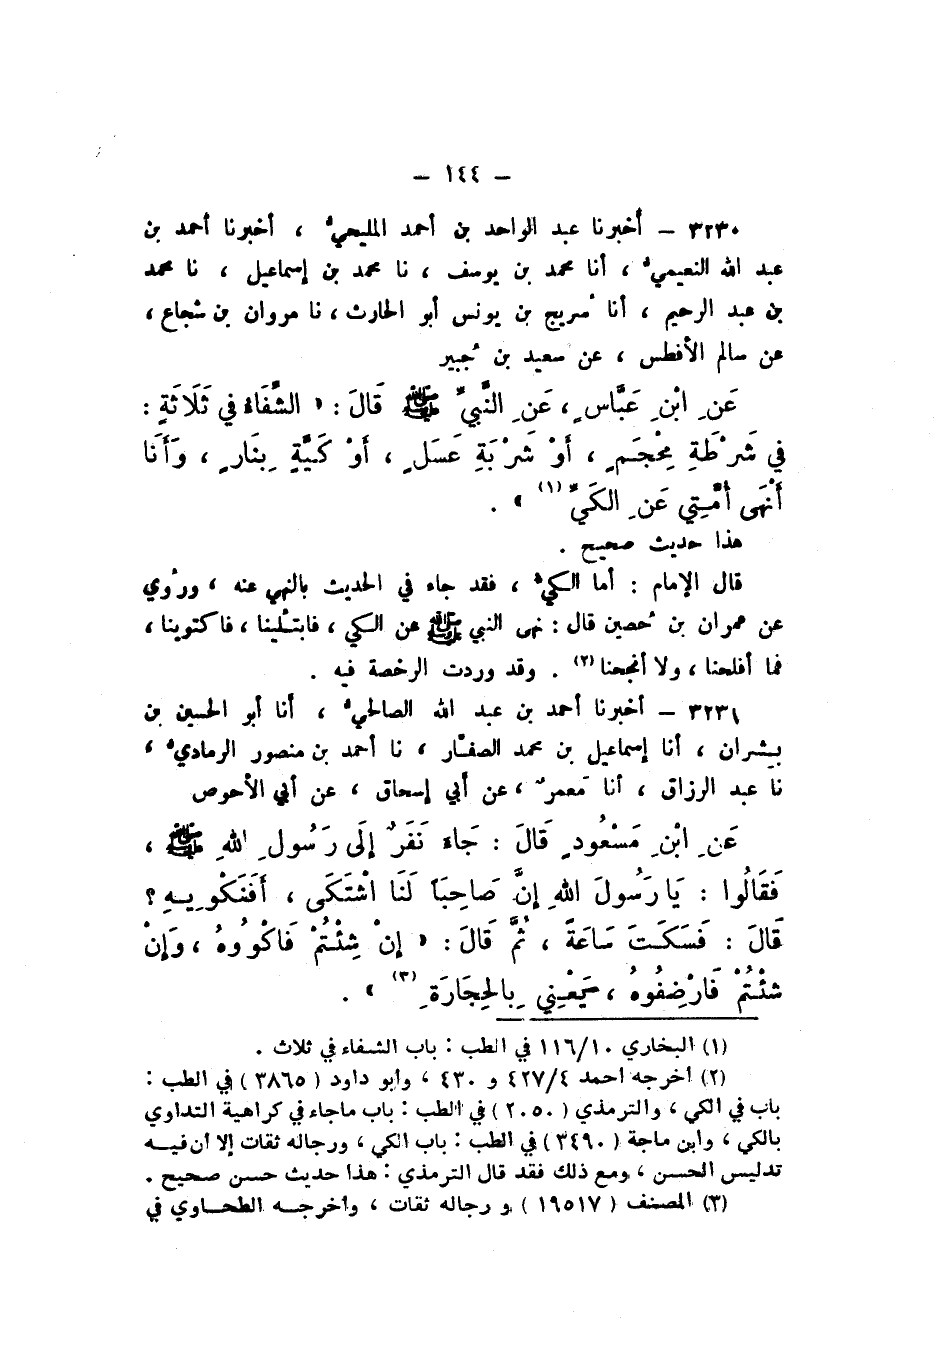 — ١٤٤ —
٣٢٣٠ – أخبرنا عبد الواحد بن أحمد المليحيُّ ، أخبرنا أحمد بن
عبد الله النعيميُّ ، أنا محمد بن يوسف ، نا محمد بن إسماعيل ، نا محمد
بن عبد الرحيم ، أنا سُريج بن يونس أبو الحارث ، نا مروان بن شجاع ،
عن سالم الأفطس ، عن سعيد بن جُبير
عَنِ ابْنِ عَبَّاسٍ ، عَنِ النَّبيِّ ﷺ قَالَ : « الشِّفَاءُ في ثَلَاثَةٍ :
في شَرْطَةِ مِحْجَمٍ ، أَوْ شَرْبَةِ عَسَلٍ ، أَوْ كَيَّةٍ بِنَارٍ ، وَأَنَا
أَنْهَى أُمَّتِي عَنِ الكَيِّ (١) » .
هذا حديث صحيح .
قال الإمام : أما الكيُّ ، فقد جاء في الحديث بالنهي عنه ، ورُوي
عن عمران بن حُصين قال : نهى النبي ﷺ عن الكي ، فابتُلينا ، فاكتوينا ،
فما أفلحنا ، ولا أنجحنا (٢) . وقد وردت الرخصة فيه .
٣٢٣١ – أخبرنا أحمد بن عبد الله الصالحيُّ ، أنا أبو الحسين بن
بشران ، أنا إسماعيل بن محمد الصفّار ، نا أحمد بن منصور الرماديُّ ،
نا عبد الرزاق ، أنا مَعمرٌ ، عن أبي إسحاق ، عن أبي الأحوص
عَنِ ابْنِ مَسْعُودٍ قَالَ : جَاءَ نَفَرٌ إِلَى رَسُولِ اللهِ ﷺ ،
فَقَالُوا : يَا رَسُولَ اللهِ إِنَّ صَاحِبَاً لَنَا اشْتَكَى ، أَفَنَكْوِيهِ ؟
قَالَ : فَسَكَتَ سَاعَةً ، ثُمَّ قَالَ : « إِنْ شِئْتُمْ فَاكْوُوهُ ، وَإِنْ
شِئْتُمْ فَارْضِفُوهُ ، يَعْنِي بِالحِجَارَةِ (٣) » .
(١) البخاري ١١٦/١٠ في الطب : باب الشفاء في ثلاث .
(٢) أخرجه أحمد ٤٢٧/٤ و ٤٣٠ ، وأبو داود ( ٣٨٦٥ ) في الطب :
باب في الكي ، والترمذي ( ٢٠٥٠ ) في الطب : باب ماجاء في كراهية التداوي
بالكي ، وابن ماجة ( ٣٤٩٠ ) في الطب : باب الكي ، ورجاله ثقات إلا أن فيه
تدليس الحسن ، ومع ذلك فقد قال الترمذي : هذا حديث حسن صحيح .
(٣) المصنف ( ١٩٥١٧ ) و رجاله ثقات ، وأخرجه الطحاوي في